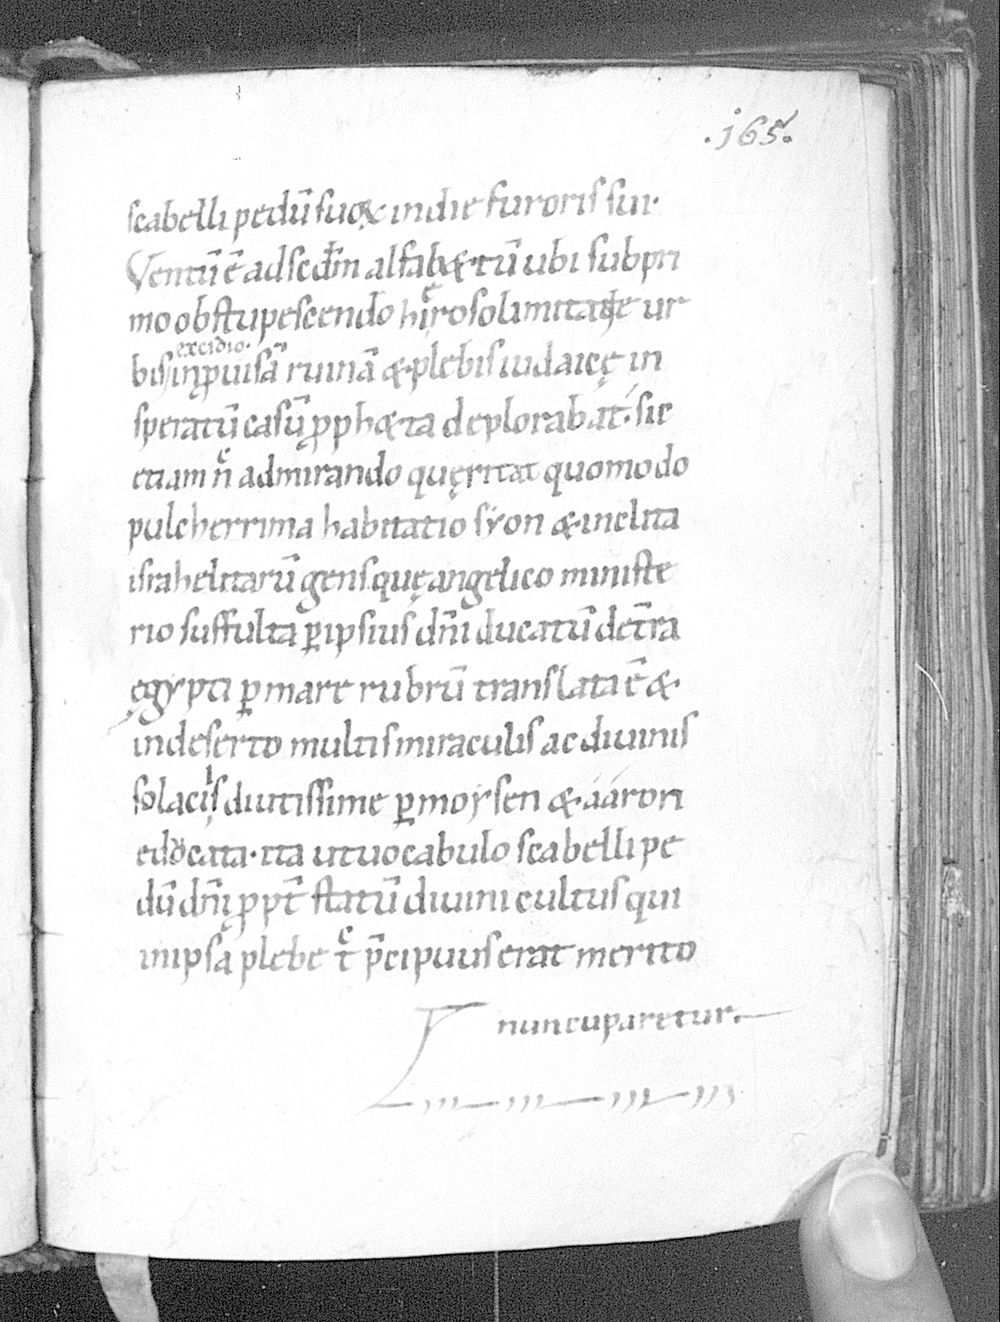 .165.
scabelli pedū suoꝝ in die furoris sui·
Ventū ē ad scd̄m alfab&tū ubi sub pri
mo obstupescendo hierosolimitae ur
excidio·
bis inꝓuisā ruinā & plebis iudaicę in
speratū casū ꝓph&a deplorabat· sic
etiam n̄c admirando quęritat quomodo
pulcherrima habitatio syon & inclita
israhelitarū gens quę angelico ministe
rio suffulta ꝑ ipsius dn̄i ducatū de t̄ra
ęgypti ꝑ mare rubrū translata ē &
in deserto multis miraculis ac diuinis
solaciis diutissime ꝑ moysen & ááron
educata· ita ut uocabulo scabelli pe
dū dn̄i ꝓpt̄ statū diuini cultus qui
in ipsa plebe tc̄ p̄cipuus erat merito
nuncuparetur.